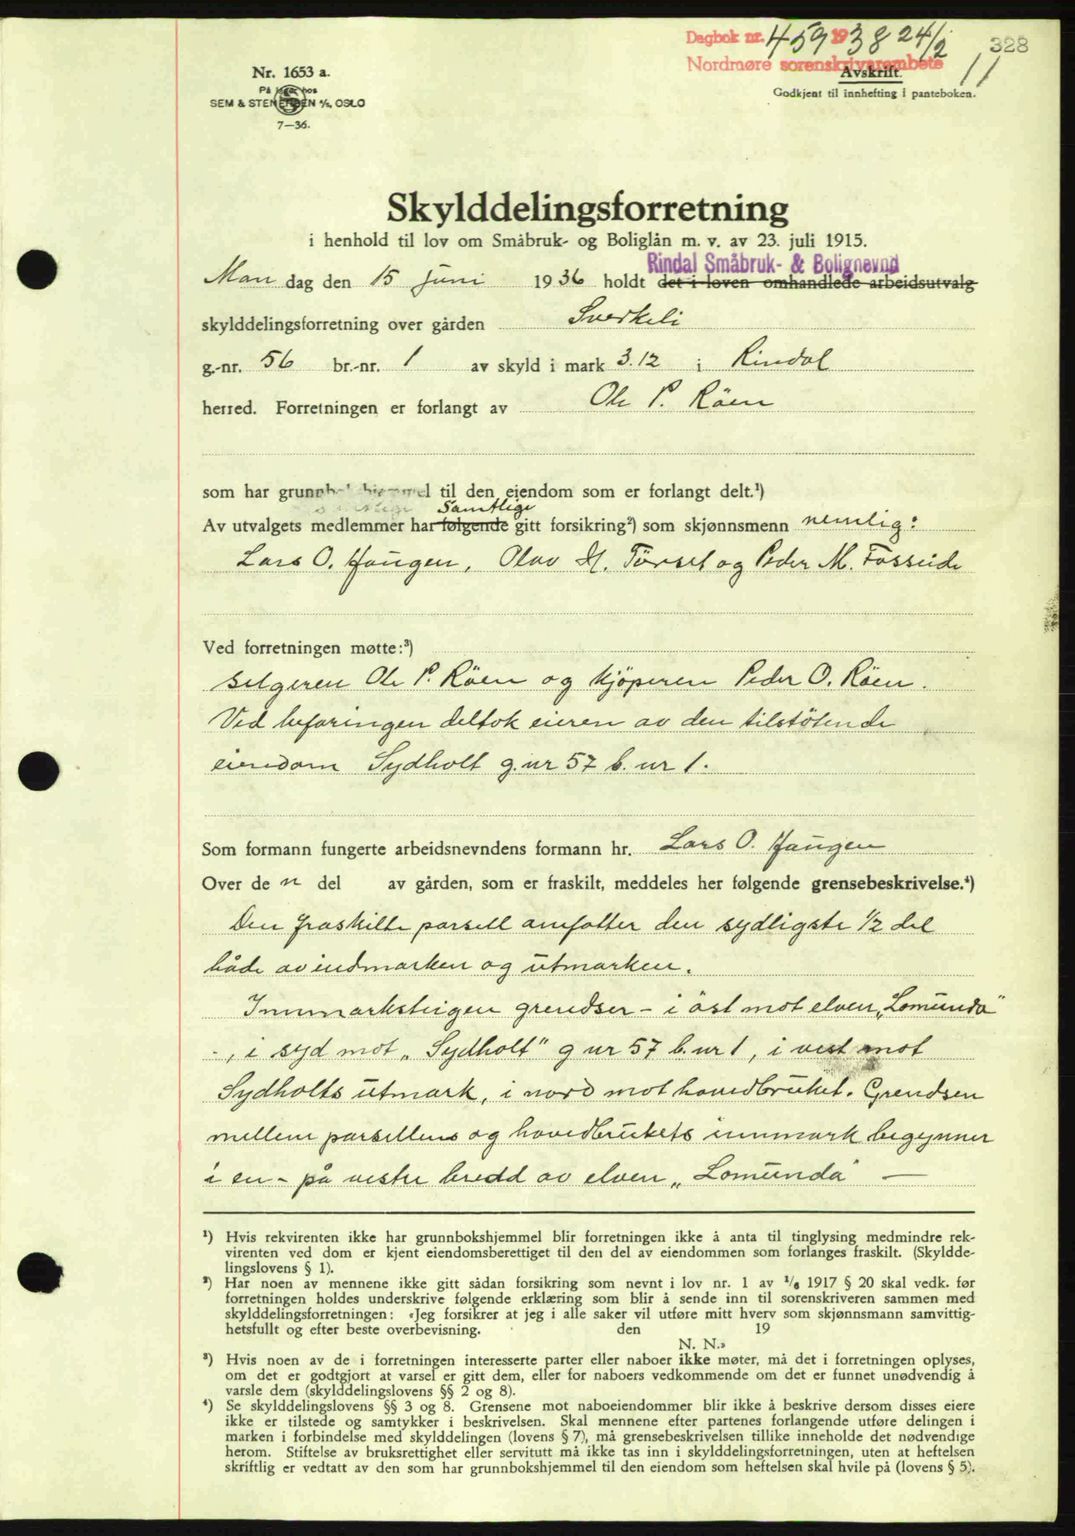 Dagbok nr. 459 1938 24/2 328
Nordmøre sorenskriverembete 11
Avskrift.
Godkjent til innhefting i panteboken.
Nr. 1653 a.
På lager hos
SEM & STENERSEN A/S, OSLO
7—36.
Skylddelingsforretning
i henhold til lov om Småbruk- og Boliglån m. v. av 23. juli 1915.
Rindal Småbruk- & Bolignevnd
Man dag den 15 juni 1936 holdt det i loven omhandlede arbeidsutvalg
skylddelingsforretning over gården Sverkeli
g.-nr. 56 br.-nr. 1 av skyld i mark 3.12 i Rindal
herred. Forretningen er forlangt av Ole P. Röen
som har grunnbokshjemmel til den eiendom som er forlangt delt.¹)
Samtlige
Av utvalgets medlemmer har følgende gitt forsikring²) som skjønnsmenn nemlig:
Lars O. Haugen, Olav H. Törset og Peder M. Fosseide
Ved forretningen møtte:³)
selgeren Ole P. Röen og kjöperen Peder O. Röen.
Ved befaringen deltok eieren av den tilstötende
eiendom Sydholt g. nr 57 b. nr 1.
Som formann fungerte arbeidsnevndens formann hr. Lars O. Haugen
Over de n del av gården, som er fraskilt, meddeles her følgende grensebeskrivelse.⁴)
Den fraskilte parsell omfatter den sydligste 1/2 del
både av indmarken og utmarken.
Innmarksteigen grendser - i öst mot elven „Lomunda"
-, i syd mot „Sydholt" g nr 57 b. nr 1, i vest mot
Sydholts utmark, i nord mot hovedbruket. Grendsen
mellem parsellens og hovedbrukets innmark begynner
i en - på vestre bredd av elven „Lomunda" —
¹) Hvis rekvirenten ikke har grunnbokshjemmel blir forretningen ikke å anta til tinglysing medmindre rek-
virenten ved dom er kjent eiendomsberettiget til den del av eiendommen som forlanges fraskilt. (Skyldde-
lingslovens § 1).
²) Har noen av mennene ikke gitt sådan forsikring som nevnt i lov nr. 1 av 1/6 1917 § 20 skal vedk. før
forretningen holdes underskrive følgende erklæring som blir å sende inn til sorenskriveren sammen med
skylddelingsforretningen: «Jeg forsikrer at jeg i alle saker vil utføre mitt hverv som skjønnsmann samvittig-
hetsfullt og efter beste overbevisning. den 19
N. N.»
³) Hvis noen av de i forretningen interesserte parter eller naboer ikke møter, må det i forretningen oplyses,
om det er godtgjort at varsel er gitt dem, eller for naboers vedkommende om det er funnet unødvendig å
varsle dem (skylddelingslovens §§ 2 og 8).
⁴) Se skylddelingslovens §§ 3 og 8. Grensene mot naboeiendommer blir ikke å beskrive dersom disses eiere
ikke er tilstede og samtykker i beskrivelsen. Skal mennene efter partenes forlangende utføre delingen i
marken i forbindelse med skylddelingen (lovens § 7), må grensebeskrivelsen tillike inneholde det nødvendige
herom. Stiftelse av bruksrettighet eller servitutt må ikke tas inn i skylddelingsforretningen, uten at heftelsen
skriftlig er vedtatt av den som har grunnbokshjemmel til den eiendom som heftelsen skal hvile på (lovens § 5).